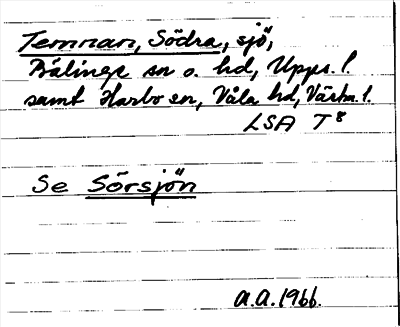 Temnan, Södra, sjö,
Bälinge sn o. hd, Upps. l.
samt Harbo sn, Våla hd, Västm. l.
LSA T⁸
Se Sörsjön
A.A. 1966.